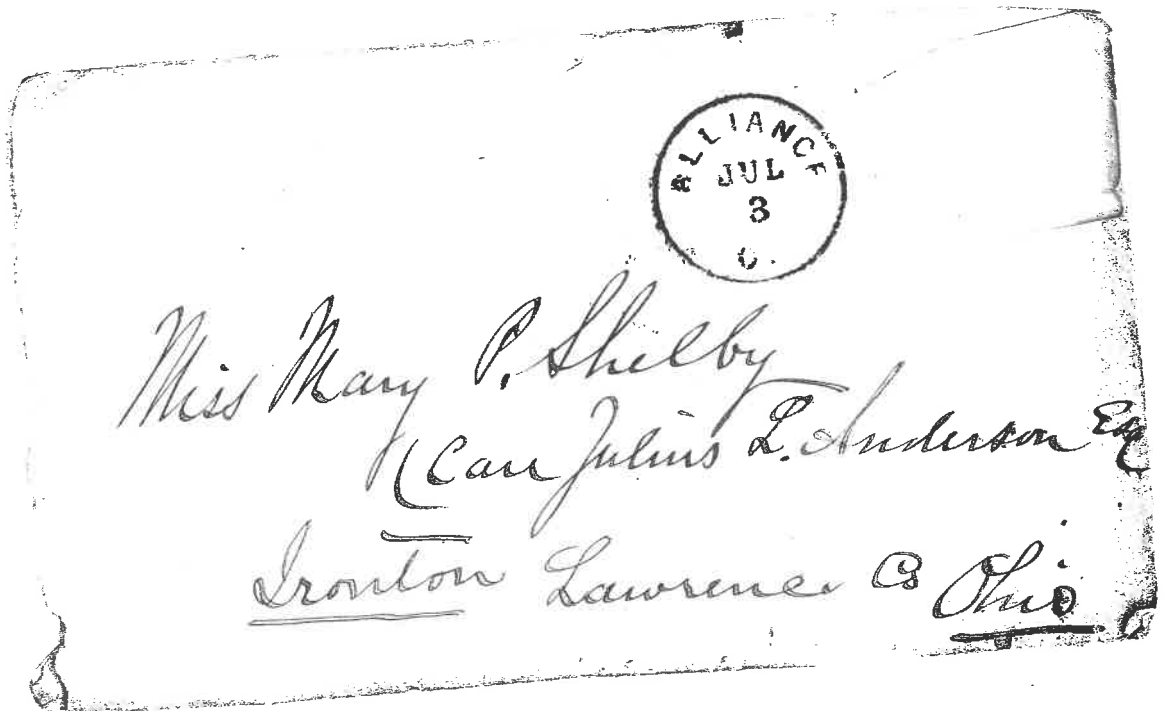 ALLIANCE
JUL
3
O.
Miss Mary P. Shelby
(Care Julius L. Anderson Esq
Ironton Lawrence Co Ohio